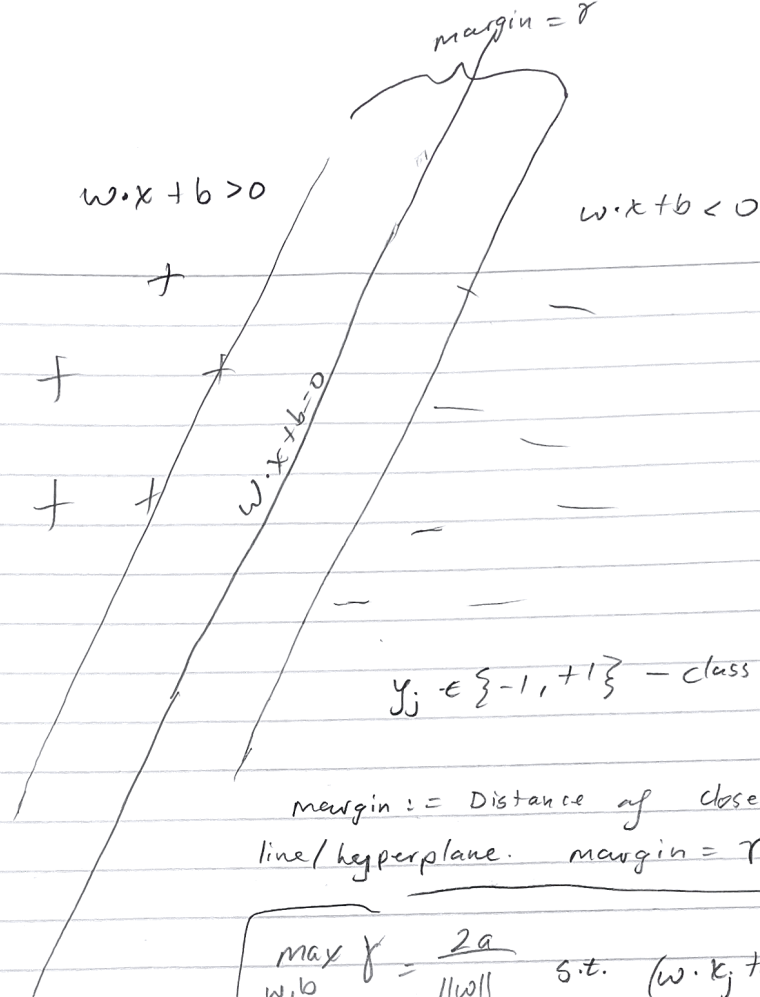 margin = γ
w·x + b > 0
w·x + b < 0
w·x + b = 0
y_j ∈ {-1, +1} - class
margin := Distance of close
line/hyperplane. margin = γ
max γ = 2a / ||w|| s.t. (w·x_j +
w,b